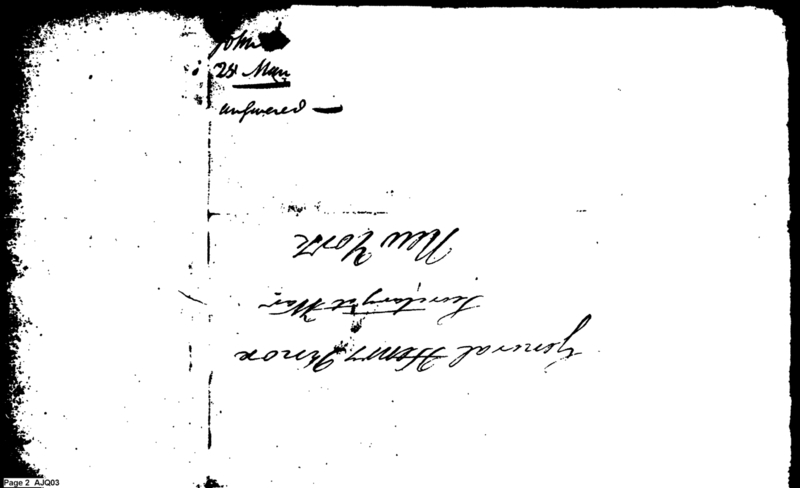 John
28 Mar
answered —
General Henry Knox
Secretary at War
New York
Page 2 AJQ03